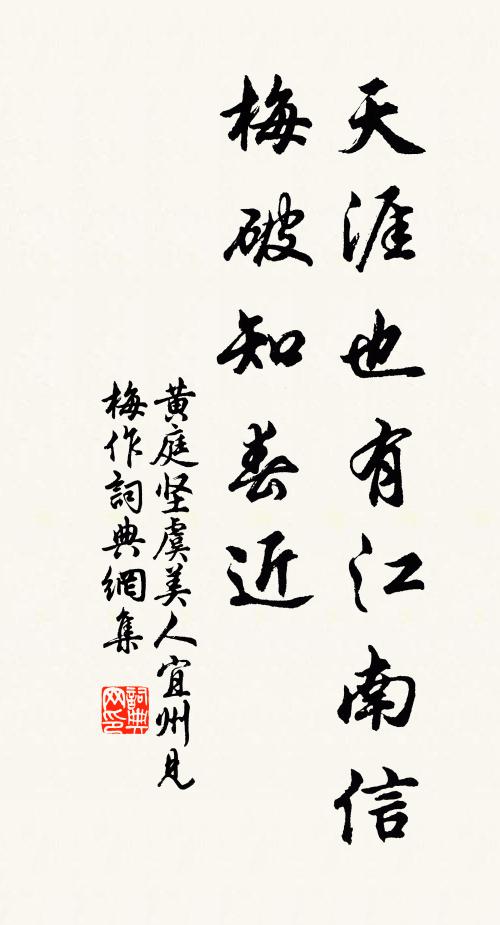 天涯也有江南信
梅破知春近
黄庭坚虞美人宜州见
梅作詞典網集
詞典网印